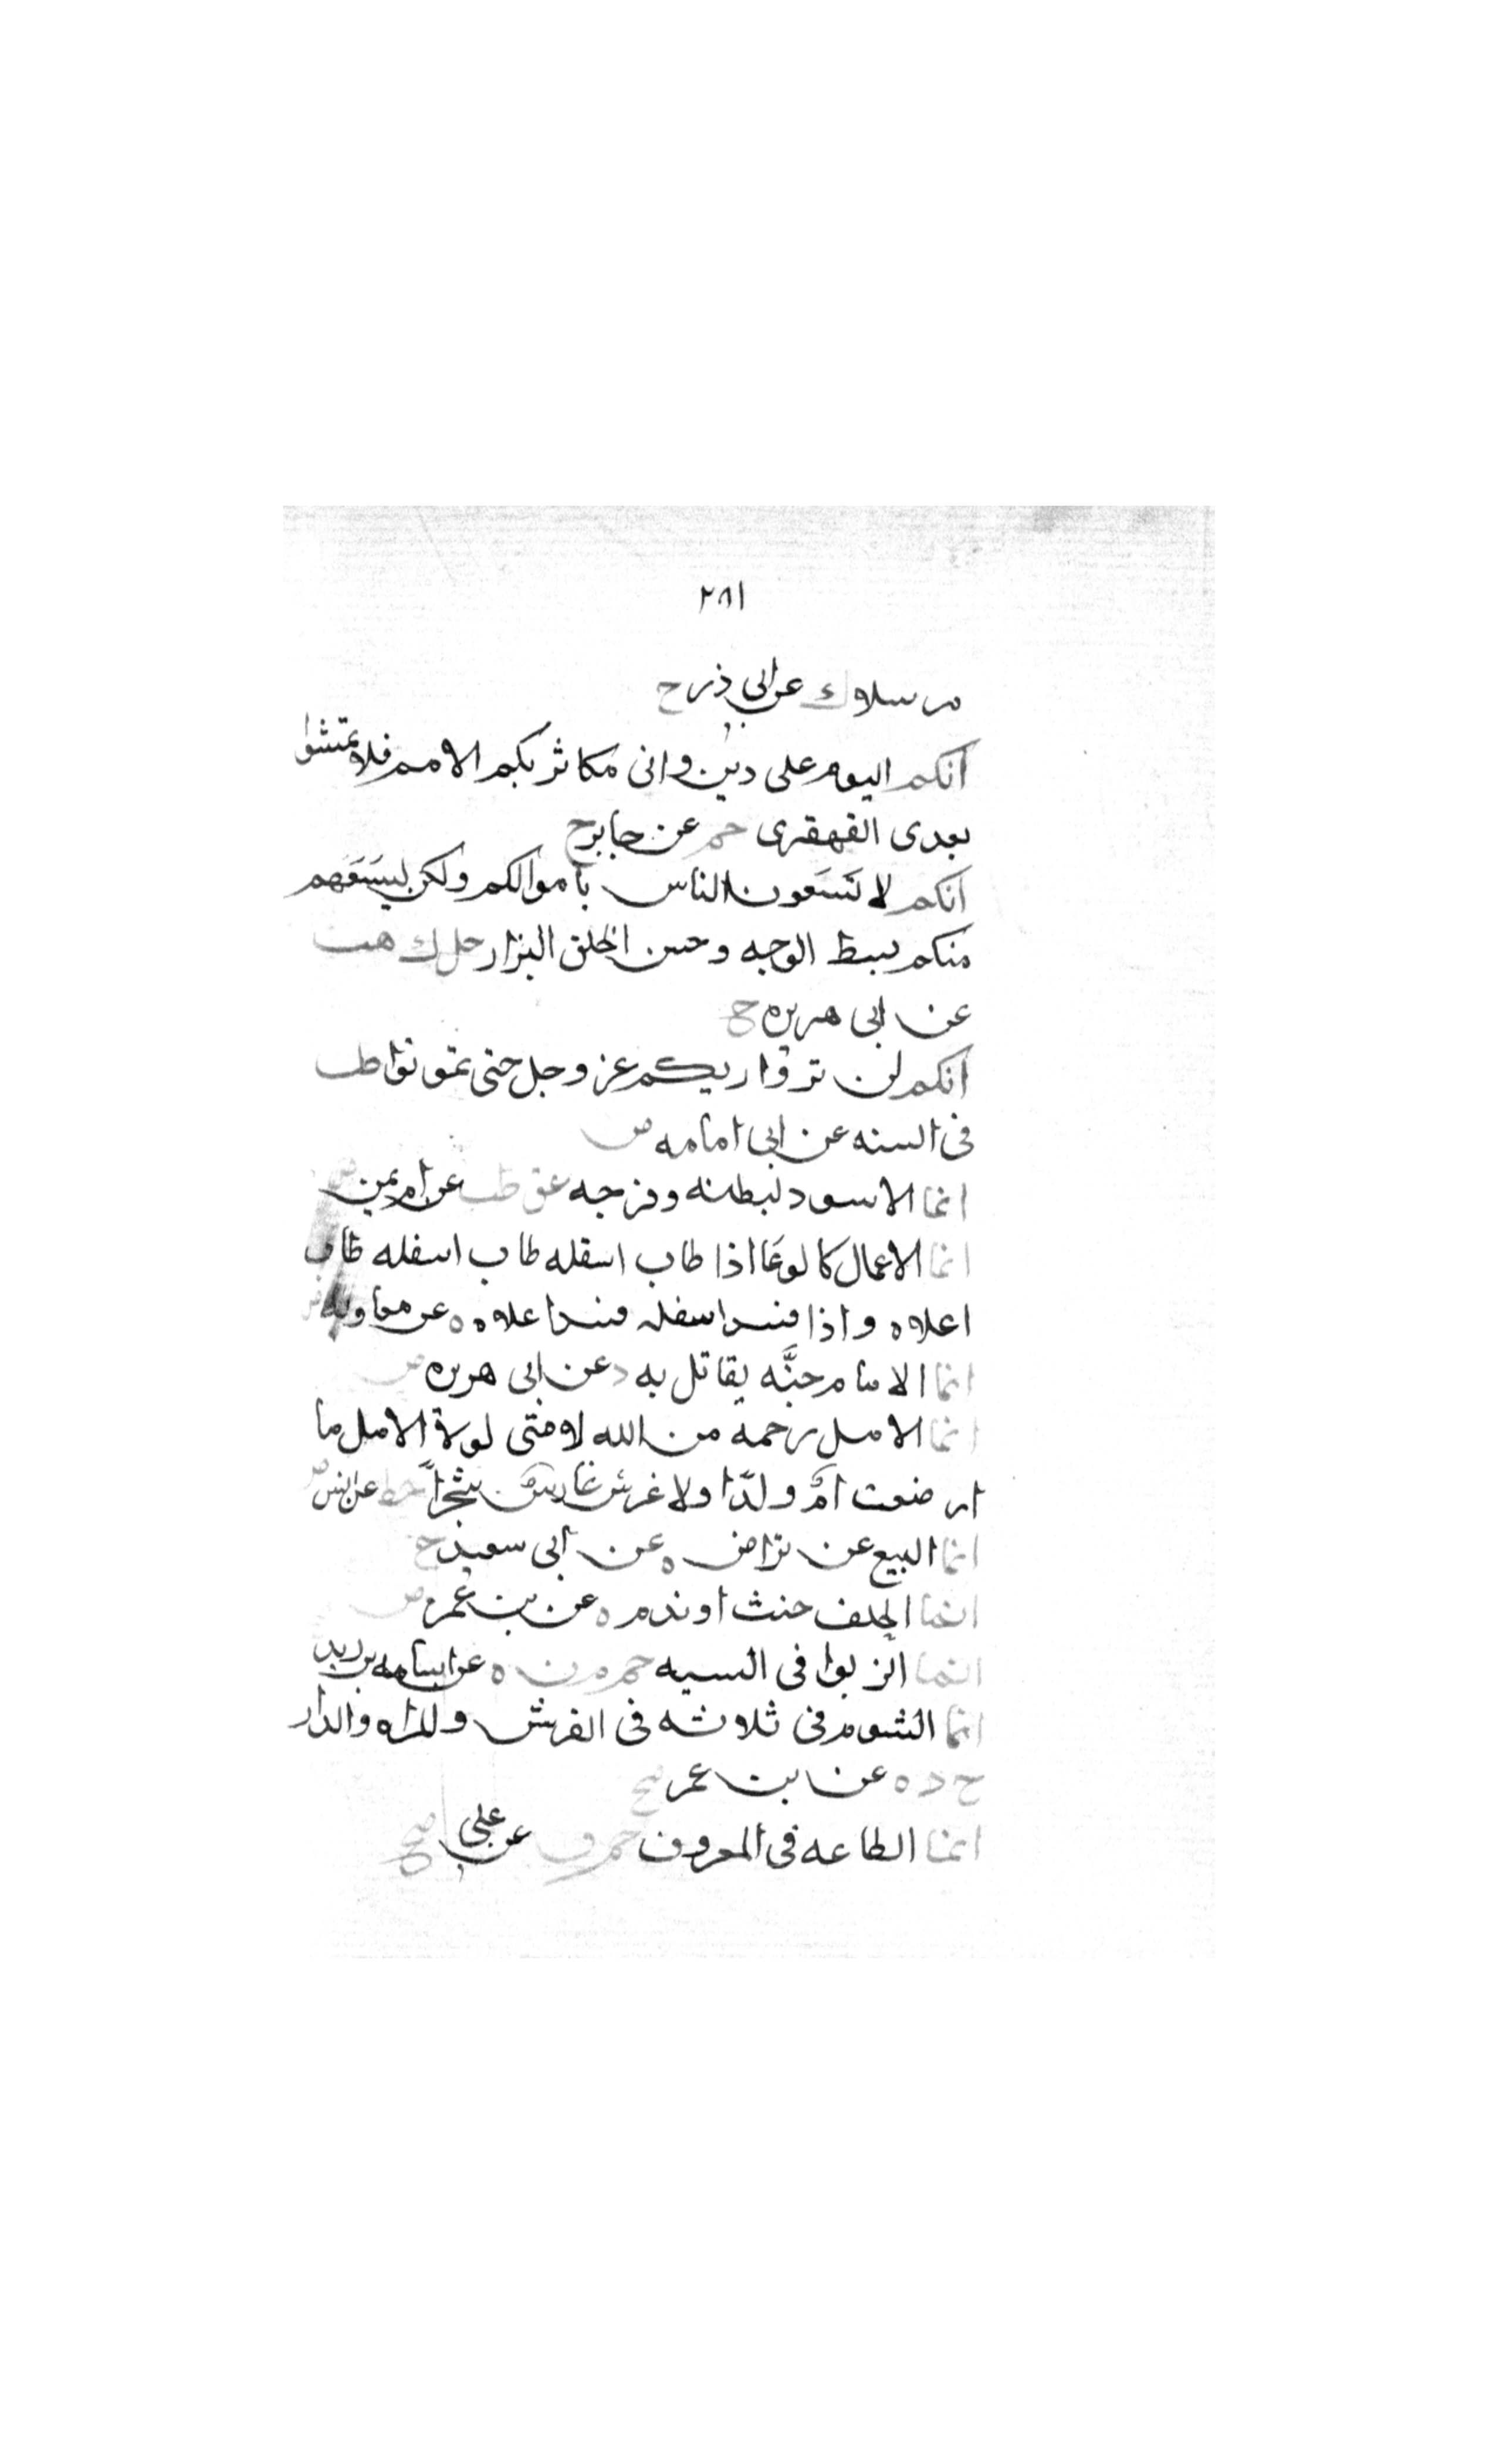 ٢٨١
مرسلا ك عن ابى ذر ح
انكم اليوم على دين وانى مكاثر بكم الامم فلا تمشوا
بعدى القهقرى حم عن جابر ح
انكم لا تَسَعون الناس باموالكم ولكن ليسَعَهم
منكم بسط الوجه وحسن الخلق البزار حل ك هب
عن ابى هريره ح
انكم لن تروا ربكم عز وجل حتى تموتوا طب
فى السنه عن ابى امامه ض
انما الاسود لبطنه وفرجه عق طب عن ام ايمن
انما الاعمال كالوعا اذا طاب اسفله طاب اسفله طاب
اعلاه واذا فسد اسفله فسد اعلاه ه عن معاويه
انما الامام جنَّه يقاتل به د عن ابى هريره ض
انما الامل رحمة من الله لامتى لولا الامل ما
ارضعت امٌ ولدًا ولا غرس غارسٌ شجراً خط عن انس
انما البيع عن تراض ه عن ابى سعيد ح
انما الحلف حنث او ندم ه عن بن عمر ض
انما الربوا فى النسيه حم م ن ه عن اسامه بن زيد
انما الشوم فى ثلاثه فى الفرس والمراه والدار
خ د ه عن بن عمر صح
انما الطاعه فى المعروف حم ق عن على صح